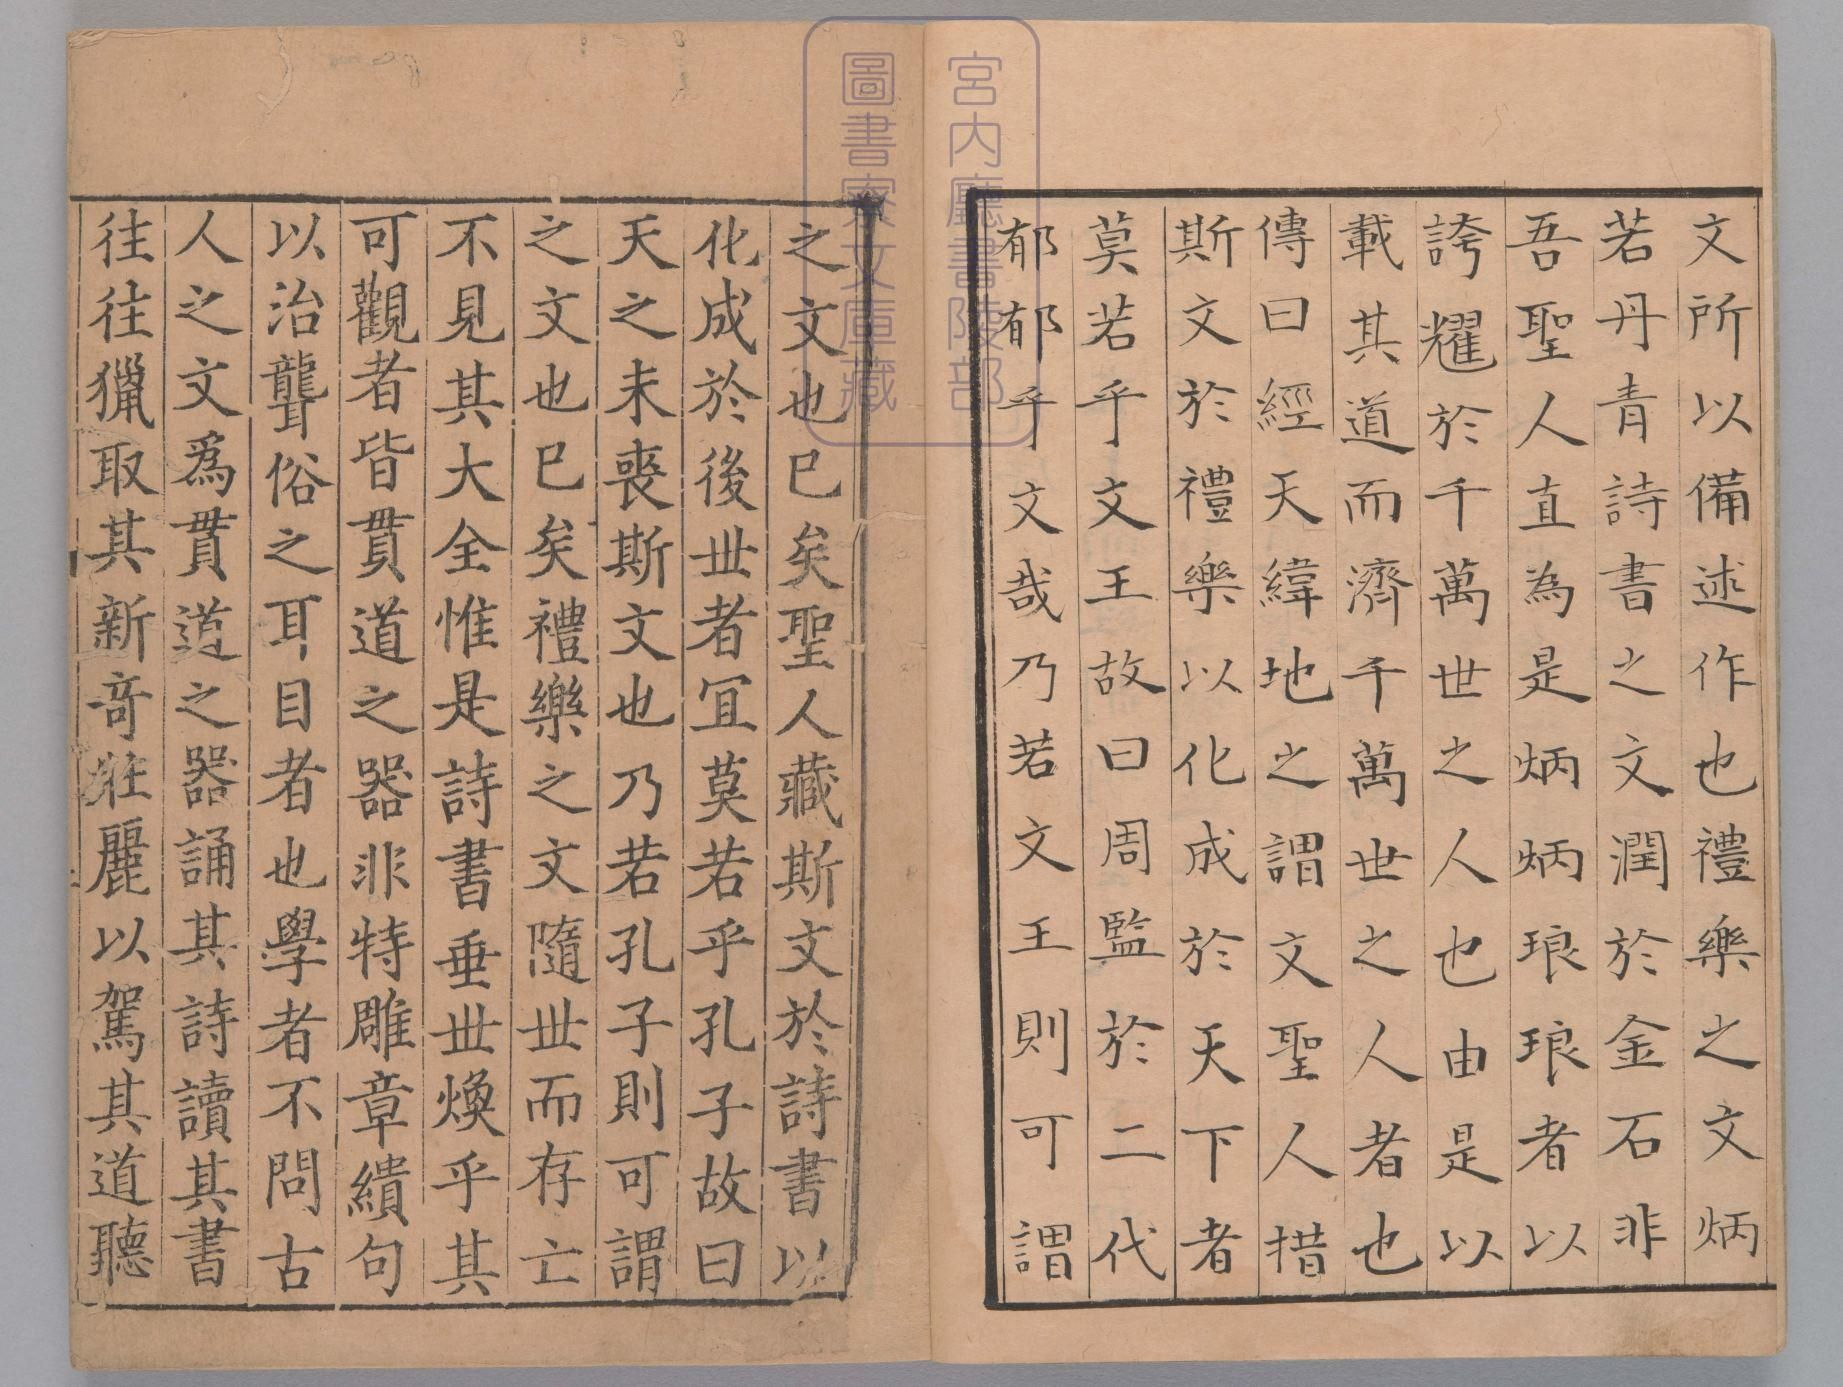 文所以備述作也禮樂之文炳
若丹青詩書之文潤於金石非
吾聖人直為是炳炳琅琅者以
誇耀於千萬世之人也由是以
載其道而濟千萬世之人者也
傳曰經天緯地之謂文聖人措
斯文於禮樂以化成於天下者
莫若乎文王故曰周監於二代
郁郁乎文哉乃若文王則可謂
之文也已矣聖人藏斯文於詩書以
化成於後世者冝莫若乎孔子故曰
天之未喪斯文也乃若孔子則可謂
之文也已矣禮樂之文隨世而存亡
不見其大全惟是詩書垂世煥乎其
可觀者皆貫道之器非特雕章繢句
以治聾俗之耳目者也學者不問古
人之文爲貫道之器誦其詩讀其書
往往獵取其新竒壯麗以駕其道聽
宮內廳書陵部
圖書寮文庫藏